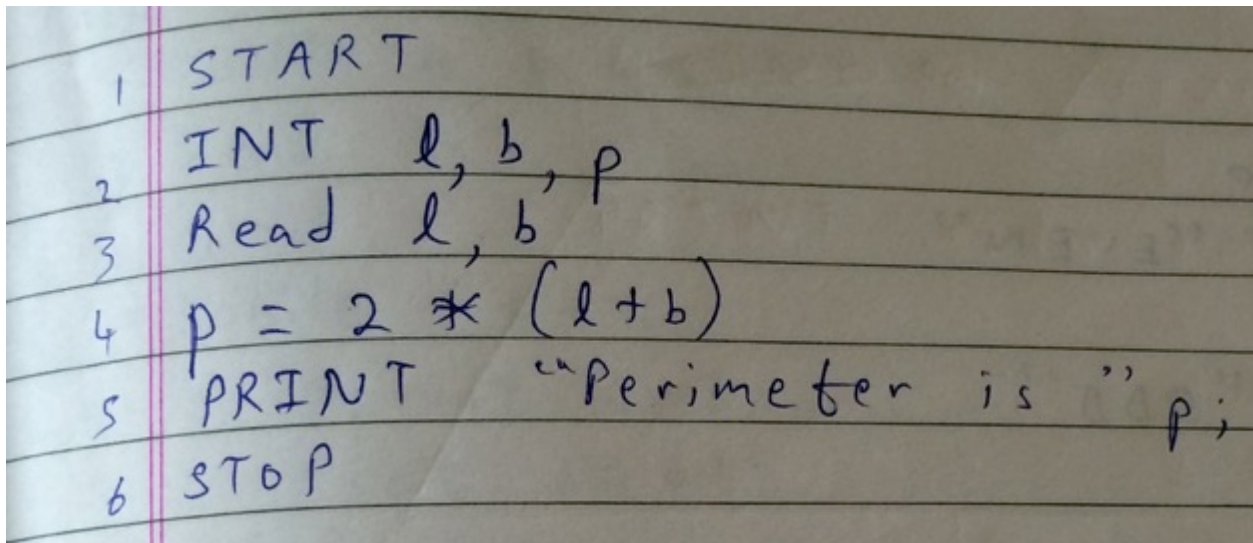 1 START
2 INT l, b, p
3 Read l, b
4 p = 2 * (l+b)
5 PRINT "Perimeter is " p;
6 STOP